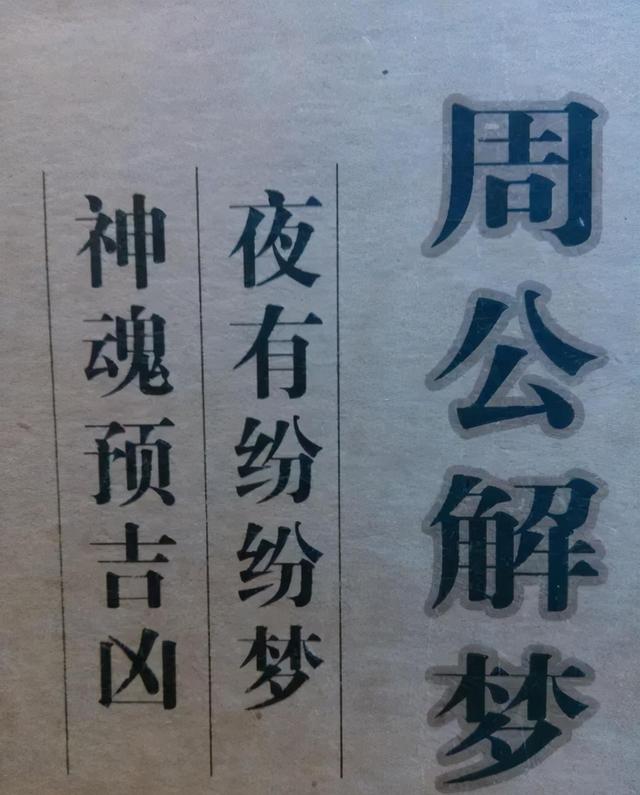 周公解梦
夜有纷纷梦
神魂预吉凶